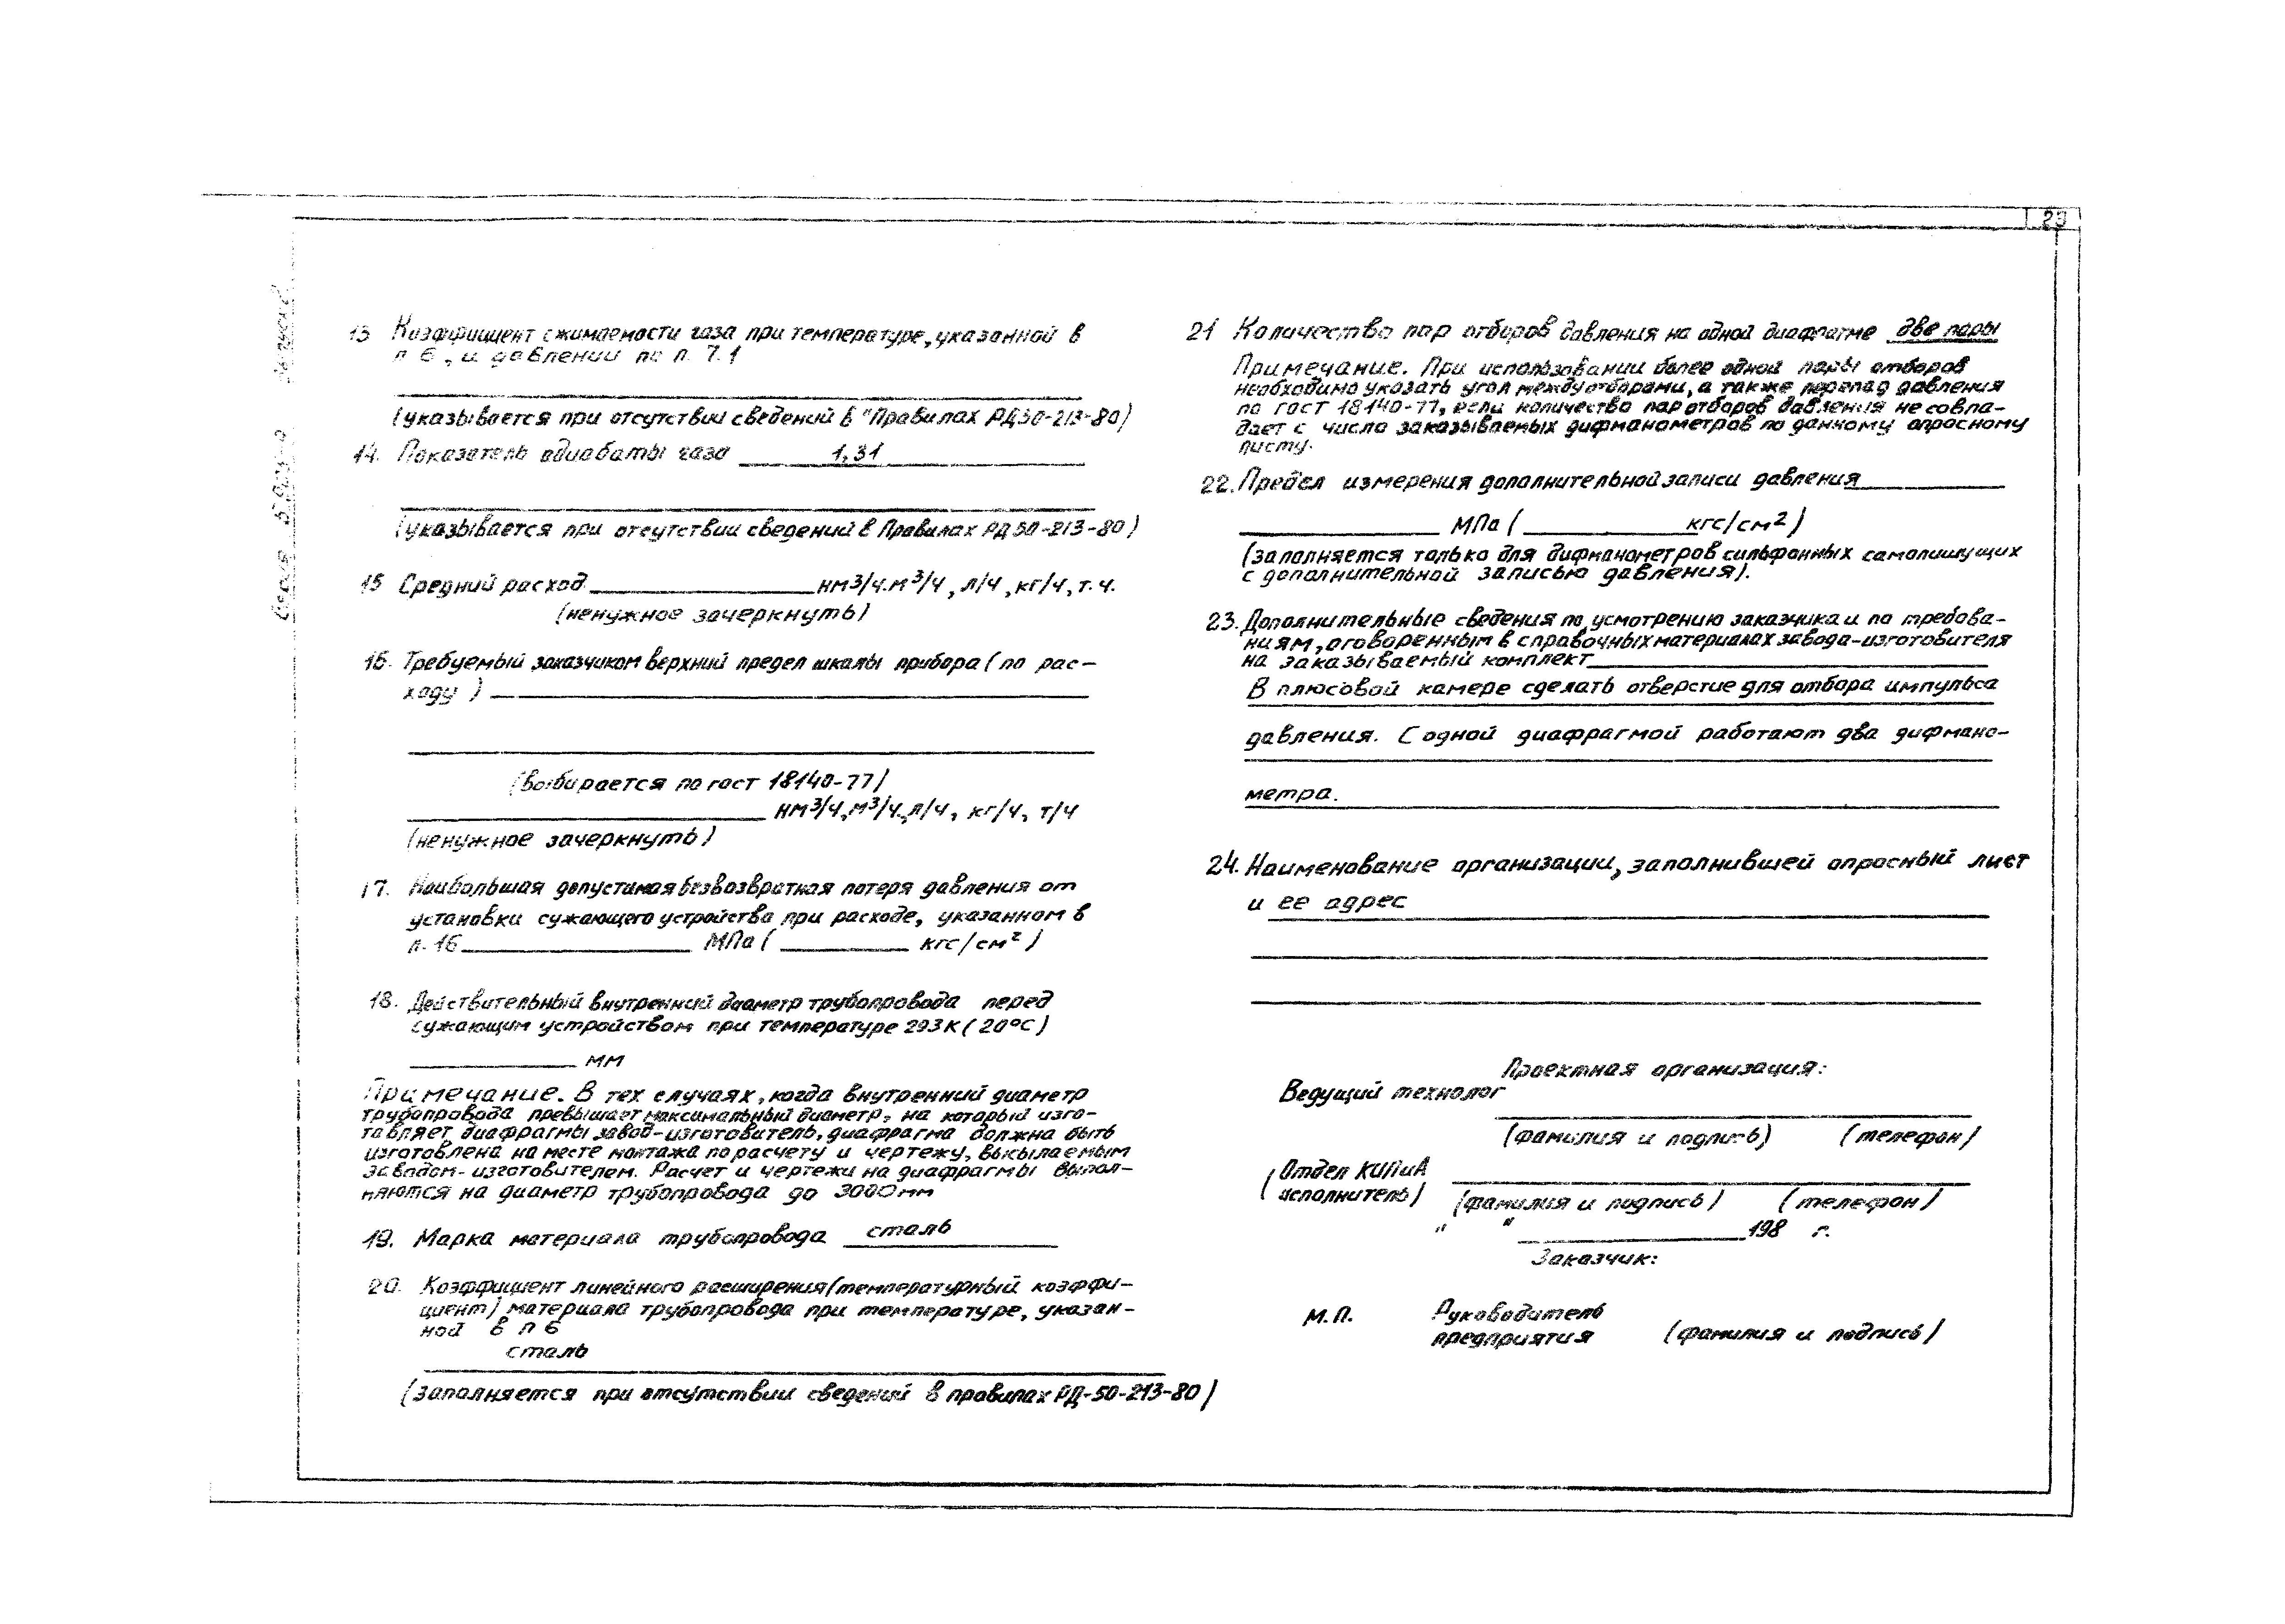 23
13 Коэффициент сжимаемости газа при температуре, указанной в
п 6, и давлении по п. 7.1
(указывается при отсутствии сведений в "Правилах РД50-213-80)
14. Показатель адиабаты газа 1,31
(указывается при отсутствии сведений в Правилах РД 50-213-80)
15 Средний расход нм³/ч.м³/ч, л/ч, кг/ч, т.ч.
(ненужное зачеркнуть)
16. Требуемый заказчиком верхний предел шкалы прибора (по рас-
ходу)
(Выбирается по гост 18140-77)
нм³/ч, м³/ч., л/ч, кг/ч, т/ч
(ненужное зачеркнуть)
17. Наибольшая допустимая безвозвратная потеря давления от
установки сужающего устройства при расходе, указанном в
п. 16 МПа ( кгс/см²)
18. Действительный внутренний диаметр трубопровода перед
сужающим устройством при температуре 293К (20°С)
мм
Примечание. В тех случаях, когда внутренний диаметр
трубопровода превышает максимальный диаметр, на который изго-
тавляет диафрагмы завод-изготовитель, диафрагма должна быть
изготовлена на месте монтажа по расчету и чертежу, высылаемым
заводом-изготовителем. Расчет и чертежи на диафрагмы выпол-
няются на диаметр трубопровода до 3000 мм
19. Марка материала трубопровода сталь
20. Коэффициент линейного расширения (температурный коэффи-
циент) материала трубопровода при температуре, указан-
ной в п 6
сталь
(заполняется при отсутствии сведений в правилах РД-50-213-80)
21 Количество пар отборов давления на одной диафрагме две пары
Примечание. При использовании более одной пары отборов
необходимо указать угол между отборами, а также перепад давления
по гост 18140-77, если количество пар отборов давления не совпа-
дает с число заказываемых дифманометров по данному опросному
листу.
22. Предел измерения дополнительной записи давления
МПа ( кгс/см²)
(заполняется только для дифманометров сильфонных самопишущих
с дополнительной записью давления).
23. Дополнительные сведения по усмотрению заказчика и по требова-
ниям, оговоренным в справочных материалах завода-изготовителя
на заказываемый комплект
В плюсовой камере сделать отверстие для отбора импульса
давления. С одной диафрагмой работают два дифмано-
метра.
24. Наименование организации, заполнившей опросный лист
и ее адрес
Проектная организация:
Ведущий технолог
(фамилия и подпись) (телефон)
(Отдел КИПиА
исполнитель)
(фамилия и подпись) (телефон)
" " 198 г.
Заказчик:
М.П. Руководитель
предприятия (фамилия и подпись)